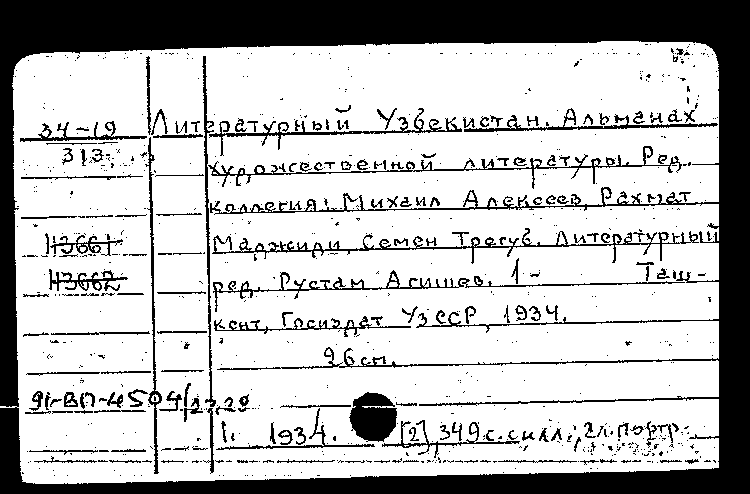 34-19 Литературный Узбекистан. Альманах
313 художественной литературы. Ред.
коллегия: Михаил Алексеев, Рахмат
43661 Маджиди, Семен Трегуб. Литературный
43662 ред. Рустам Агишев. 1- Таш-
кент, Госиздат УзССР, 1934.
26 см.
91-ВП-4504/27,28
1. 1934. [2], 349 с. с илл., 2 л. портр.